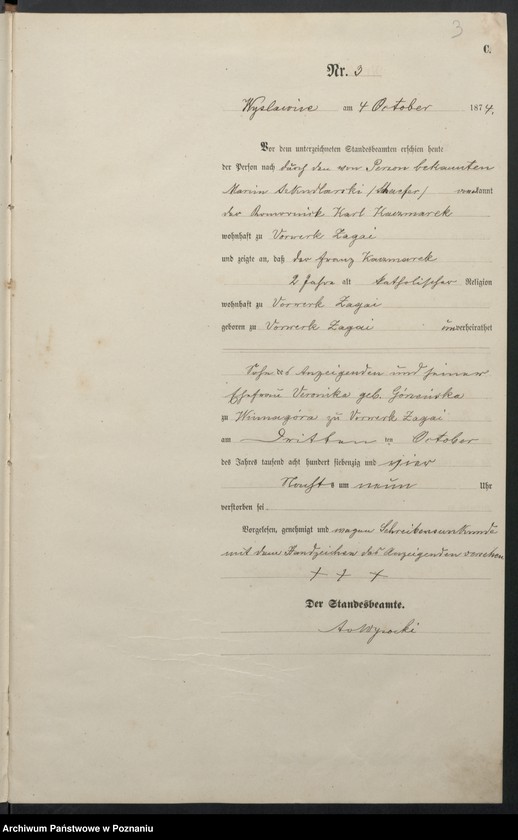 3
C.
Nr. 3
Wyslawice am 4 October 1874.
Vor dem unterzeichneten Standesbeamten erschien heute
der Person nach durch den von Person bekannten
Marcin (Schaefer) bekannt
der Karl Kaczmarek
wohnhaft zu Vorwerk Zagai
und zeigte an, daß der Franz Kaczmarek
2 Jahre alt katholischer Religion
wohnhaft zu Vorwerk Zagai
geboren zu Vorwerk Zagai unverheirathet
Sohn des Anzeigenden und seiner
Ehefrau Veronika geb.
zu Winnagóra zu Vorwerk Zagai
am Dritten ten October
des Jahres tausend acht hundert siebenzig und vier
Nachts um neun Uhr
verstorben sei.
Vorgelesen, genehmigt und wegen Schreibensunkunde
mit dem Handzeichen des Anzeigenden versehen
+ + +
Der Standesbeamte.
Archiwum Państwowe w Poznaniu